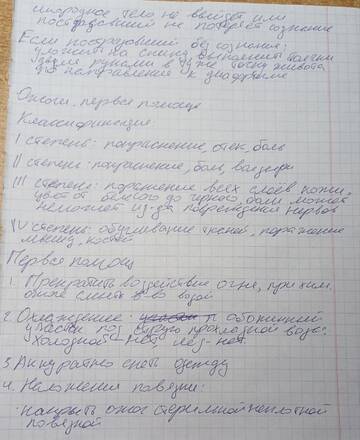 инородное тело не выйдет или
пострадавший не потеряет сознание
Если пострадавший без сознания:
уложить на спину, выполнить толчки
двумя руками в ту же точку живота
по направлению к диафрагме
Ожоги, первая помощь
Классификация
I степень: покраснение, отек, боль
II степень: покраснение, боль, волдыри
III степень: поражение всех слоёв кожи,
цвет от белого до чёрного, боли может
не быть из-за повреждения нервов
IV степень: обугливание тканей, поражение
мышц, костей
Первая помощь
1. Прекратить воздействие огня, при хим.
ожоге смыть в-во водой
2. Охлаждение: обожжённый
участок под струю прохладной воды.
Холодной - нет, лёд - нет
3. Аккуратно снять одежду
4. Наложения повязки:
накрыть ожог стерильной неплотной
повязкой